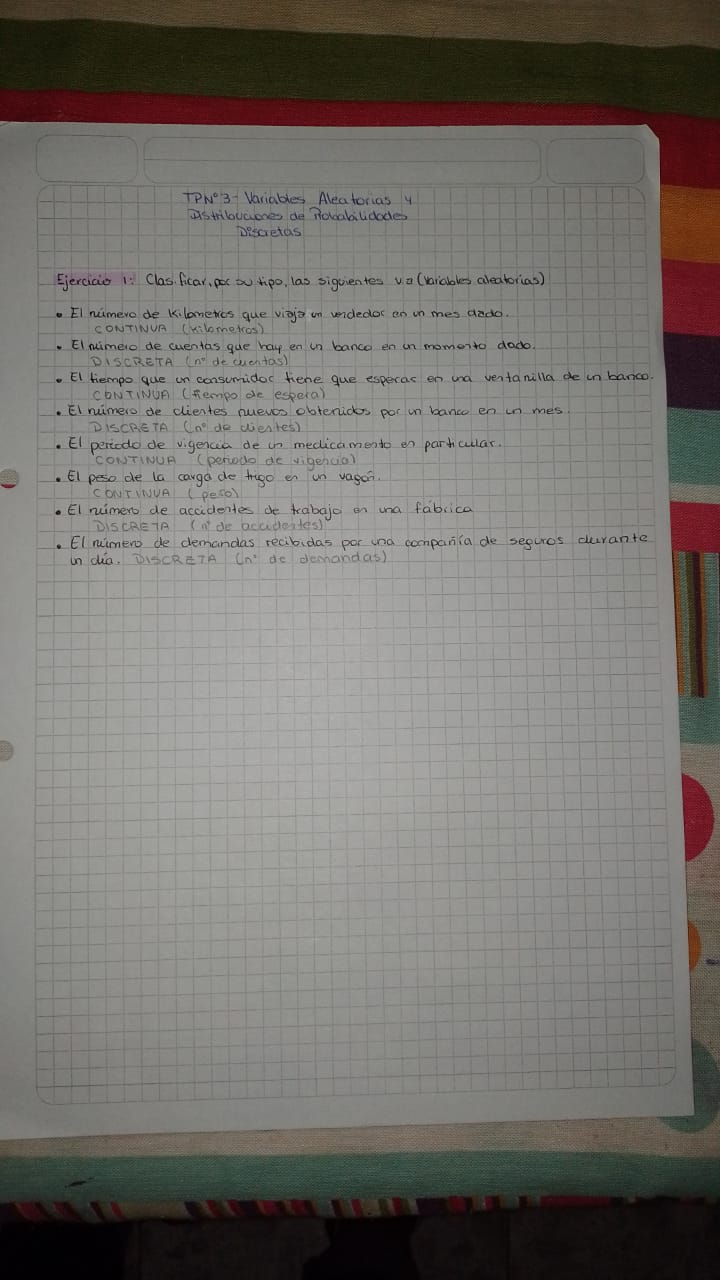 TPN°3 - Variables Aleatorias y
Distribuciones de Probabilidades
Discretas
Ejercicio 1: Clasificar, por su tipo, las siguientes va (variables aleatorias)
• El número de kilometros que viaja un vendedor en un mes dado.
CONTINUA (kilometros)
• El número de cuentas que hay en un banco en un momento dado.
DISCRETA (n° de cuentas)
• El tiempo que un consumidor tiene que esperar en una ventanilla de un banco.
CONTINUA (tiempo de espera)
• El número de clientes nuevos obtenidos por un banco en un mes.
DISCRETA (n° de clientes)
• El periodo de vigencia de un medicamento en particular.
CONTINUA (periodo de vigencia)
• El peso de la carga de trigo en un vagón.
CONTINUA (peso)
• El número de accidentes de trabajo en una fábrica
DISCRETA (n° de accidentes)
• El número de demandas recibidas por una compañía de seguros durante
un día. DISCRETA (n° de demandas)